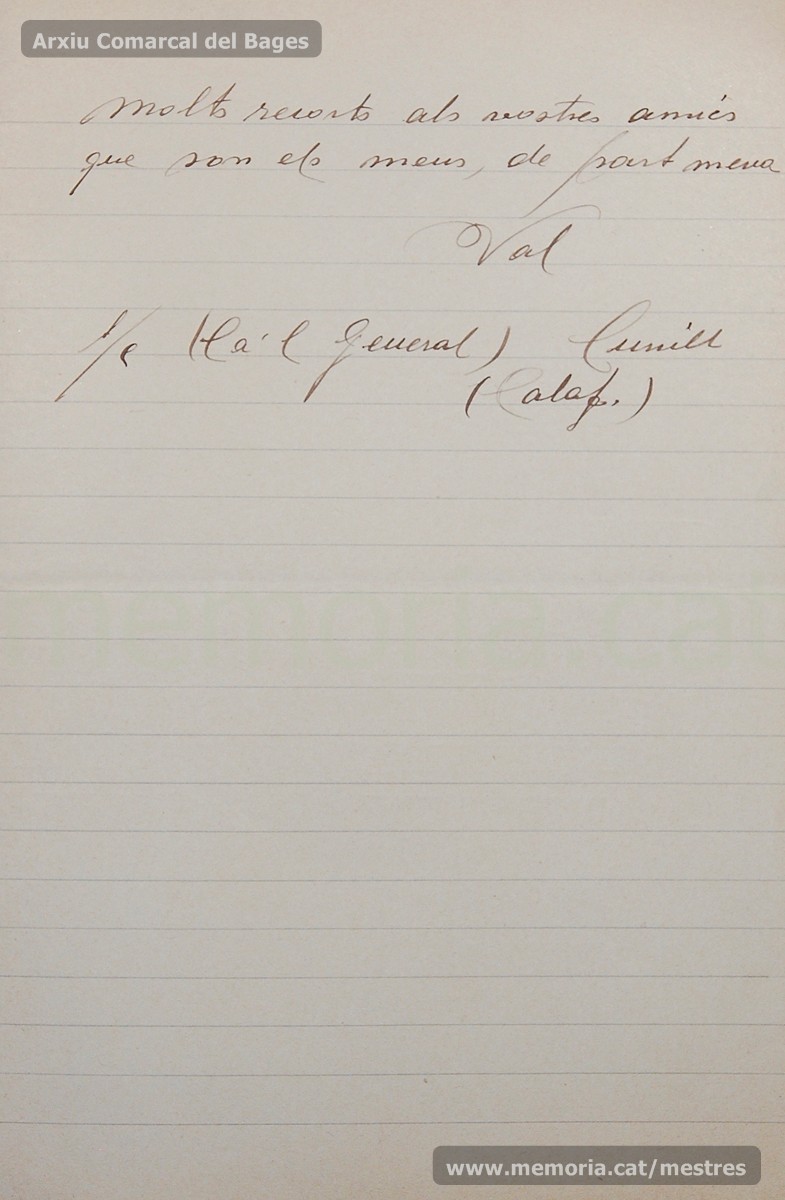 Arxiu Comarcal del Bages
Molts recorts als vostres amics
que son els meus, de part meva
Val
s/c (Ca'l General) Cunill
(Calaf.)
memoria.cat
www.memoria.cat/mestres